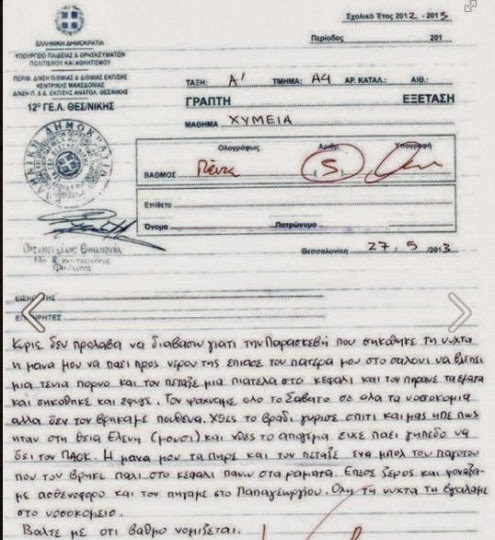 Σχολικό Έτος 2012 - 2013
Περίοδος 201
ΕΛΛΗΝΙΚΗ ΔΗΜΟΚΡΑΤΙΑ
ΥΠΟΥΡΓΕΙΟ ΠΑΙΔΕΙΑΣ & ΘΡΗΣΚΕΥΜΑΤΩΝ
ΠΟΛΙΤΙΣΜΟΥ ΚΑΙ ΑΘΛΗΤΙΣΜΟΥ
ΠΕΡΙΦ. ΔΙΝΣΗ Π/ΘΜΙΑΣ & Δ/ΘΜΙΑΣ ΕΚΠ/ΣΗΣ
ΚΕΝΤΡΙΚΗΣ ΜΑΚΕΔΟΝΙΑΣ
ΔΙΝΣΗ Π. & Δ.Ε. ΕΚΠ/ΣΗΣ ΑΝΑΤΟΛ. ΘΕΣ/ΝΙΚΗΣ
12º ΓΕ.Λ. ΘΕΣ/ΝΙΚΗΣ
ΤΑΞΗ: Α' ΤΜΗΜΑ: Α4 ΑΡ. ΚΑΤΑΛ.: ΑΙΘ.:
ΓΡΑΠΤΗ ΕΞΕΤΑΣΗ
ΜΑΘΗΜΑ ΧΥΜΕΙΑ
Ολογράφως Αριθμ. Υπογραφή
ΒΑΘΜΟΣ Πέντε 5
Επίθετο :
Όνομα : Πατρώνυμο :
Θεσσαλονίκη 27, 5 /2013
ΕΙΣΗΓΗΤΗΣ
ΕΠΙΤΗΡΗΤΕΣ
Κυριε δεν προλαβα να διαβασω γιατι την Παρασκεβή που σηκόθηκε τη νυχτα
η μανα μου να παει προς νερου της επιασε τον πατερα μου στο σαλονι να βλεπει
μια τενια πορνο και τον πεταξε μια πιατελα στο κεφαλι και τον πηρανε τα εματα
και σηκοθηκε και εφυγε. Τον ψαχναμε ολο το Σαβατο σε ολα τα νοσοκομια
αλλα δεν τον βρηκαμε πουθενα. Χθες το βραδι γυρισε σπιτι και μας ηπε πως
ηταν στη θεια Ελενη (μουσι) και χθες το απογεμα ειχε παει γηπεδο να
δει τον ΠΑΟΚ. Η μανα μου τα πηρε και τον πεταξε ενα μπολ του παγοτου
που τον βρηκε παλι στο κεφαλι πανω στα ραματα. Επεσε ξερος και φοναξαμε
ασθενοφορο και τον πηγαμε στο Παπαγεωργιου. Ολη τη νυχτα τη βγαλαμε
στο νοσοκομειο.
Βαλτε με οτι βαθμο νομιζεται.